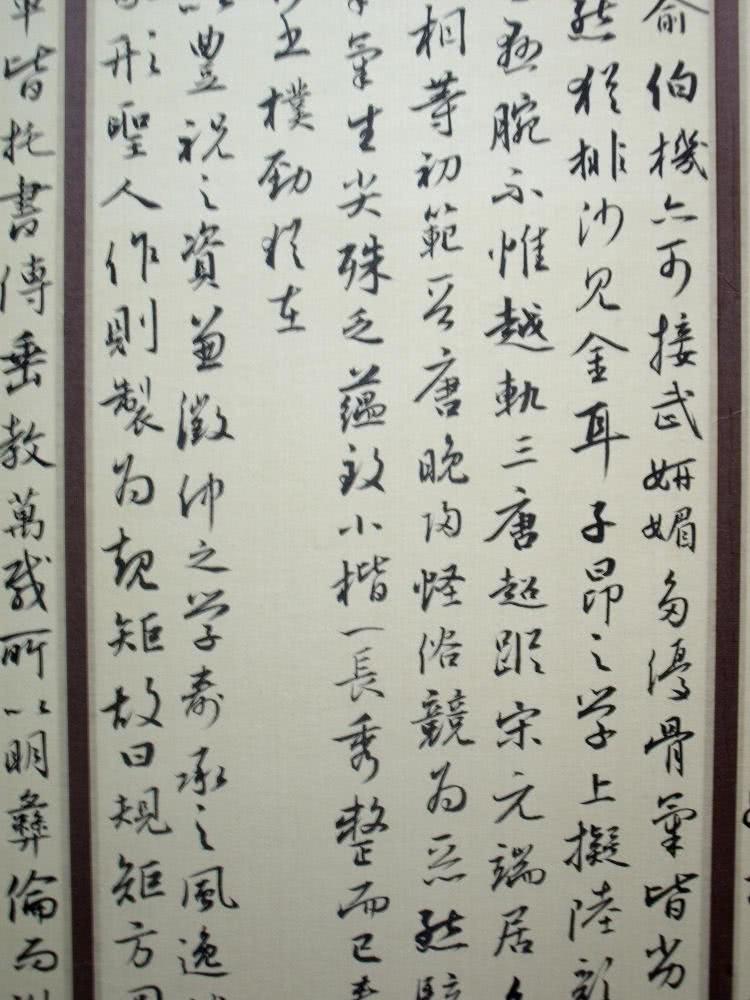 俞伯機亦可接武妍媚多優骨氣皆劣
然猶排沙見金耳子昂之學上擬陸顏
熟腕不惟越軌三唐超蹤宋元端居
相等初範晉唐晚歸怪俗競為惡態駭
氣生尖殊乏蘊致小楷一長秀整而已
樸勁猶在
以豐祝之資兼徵仲之學壽承之風逸
形聖人作則製為規矩故曰規矩方圓
皆托書傳垂教萬載所以明彝倫而淑